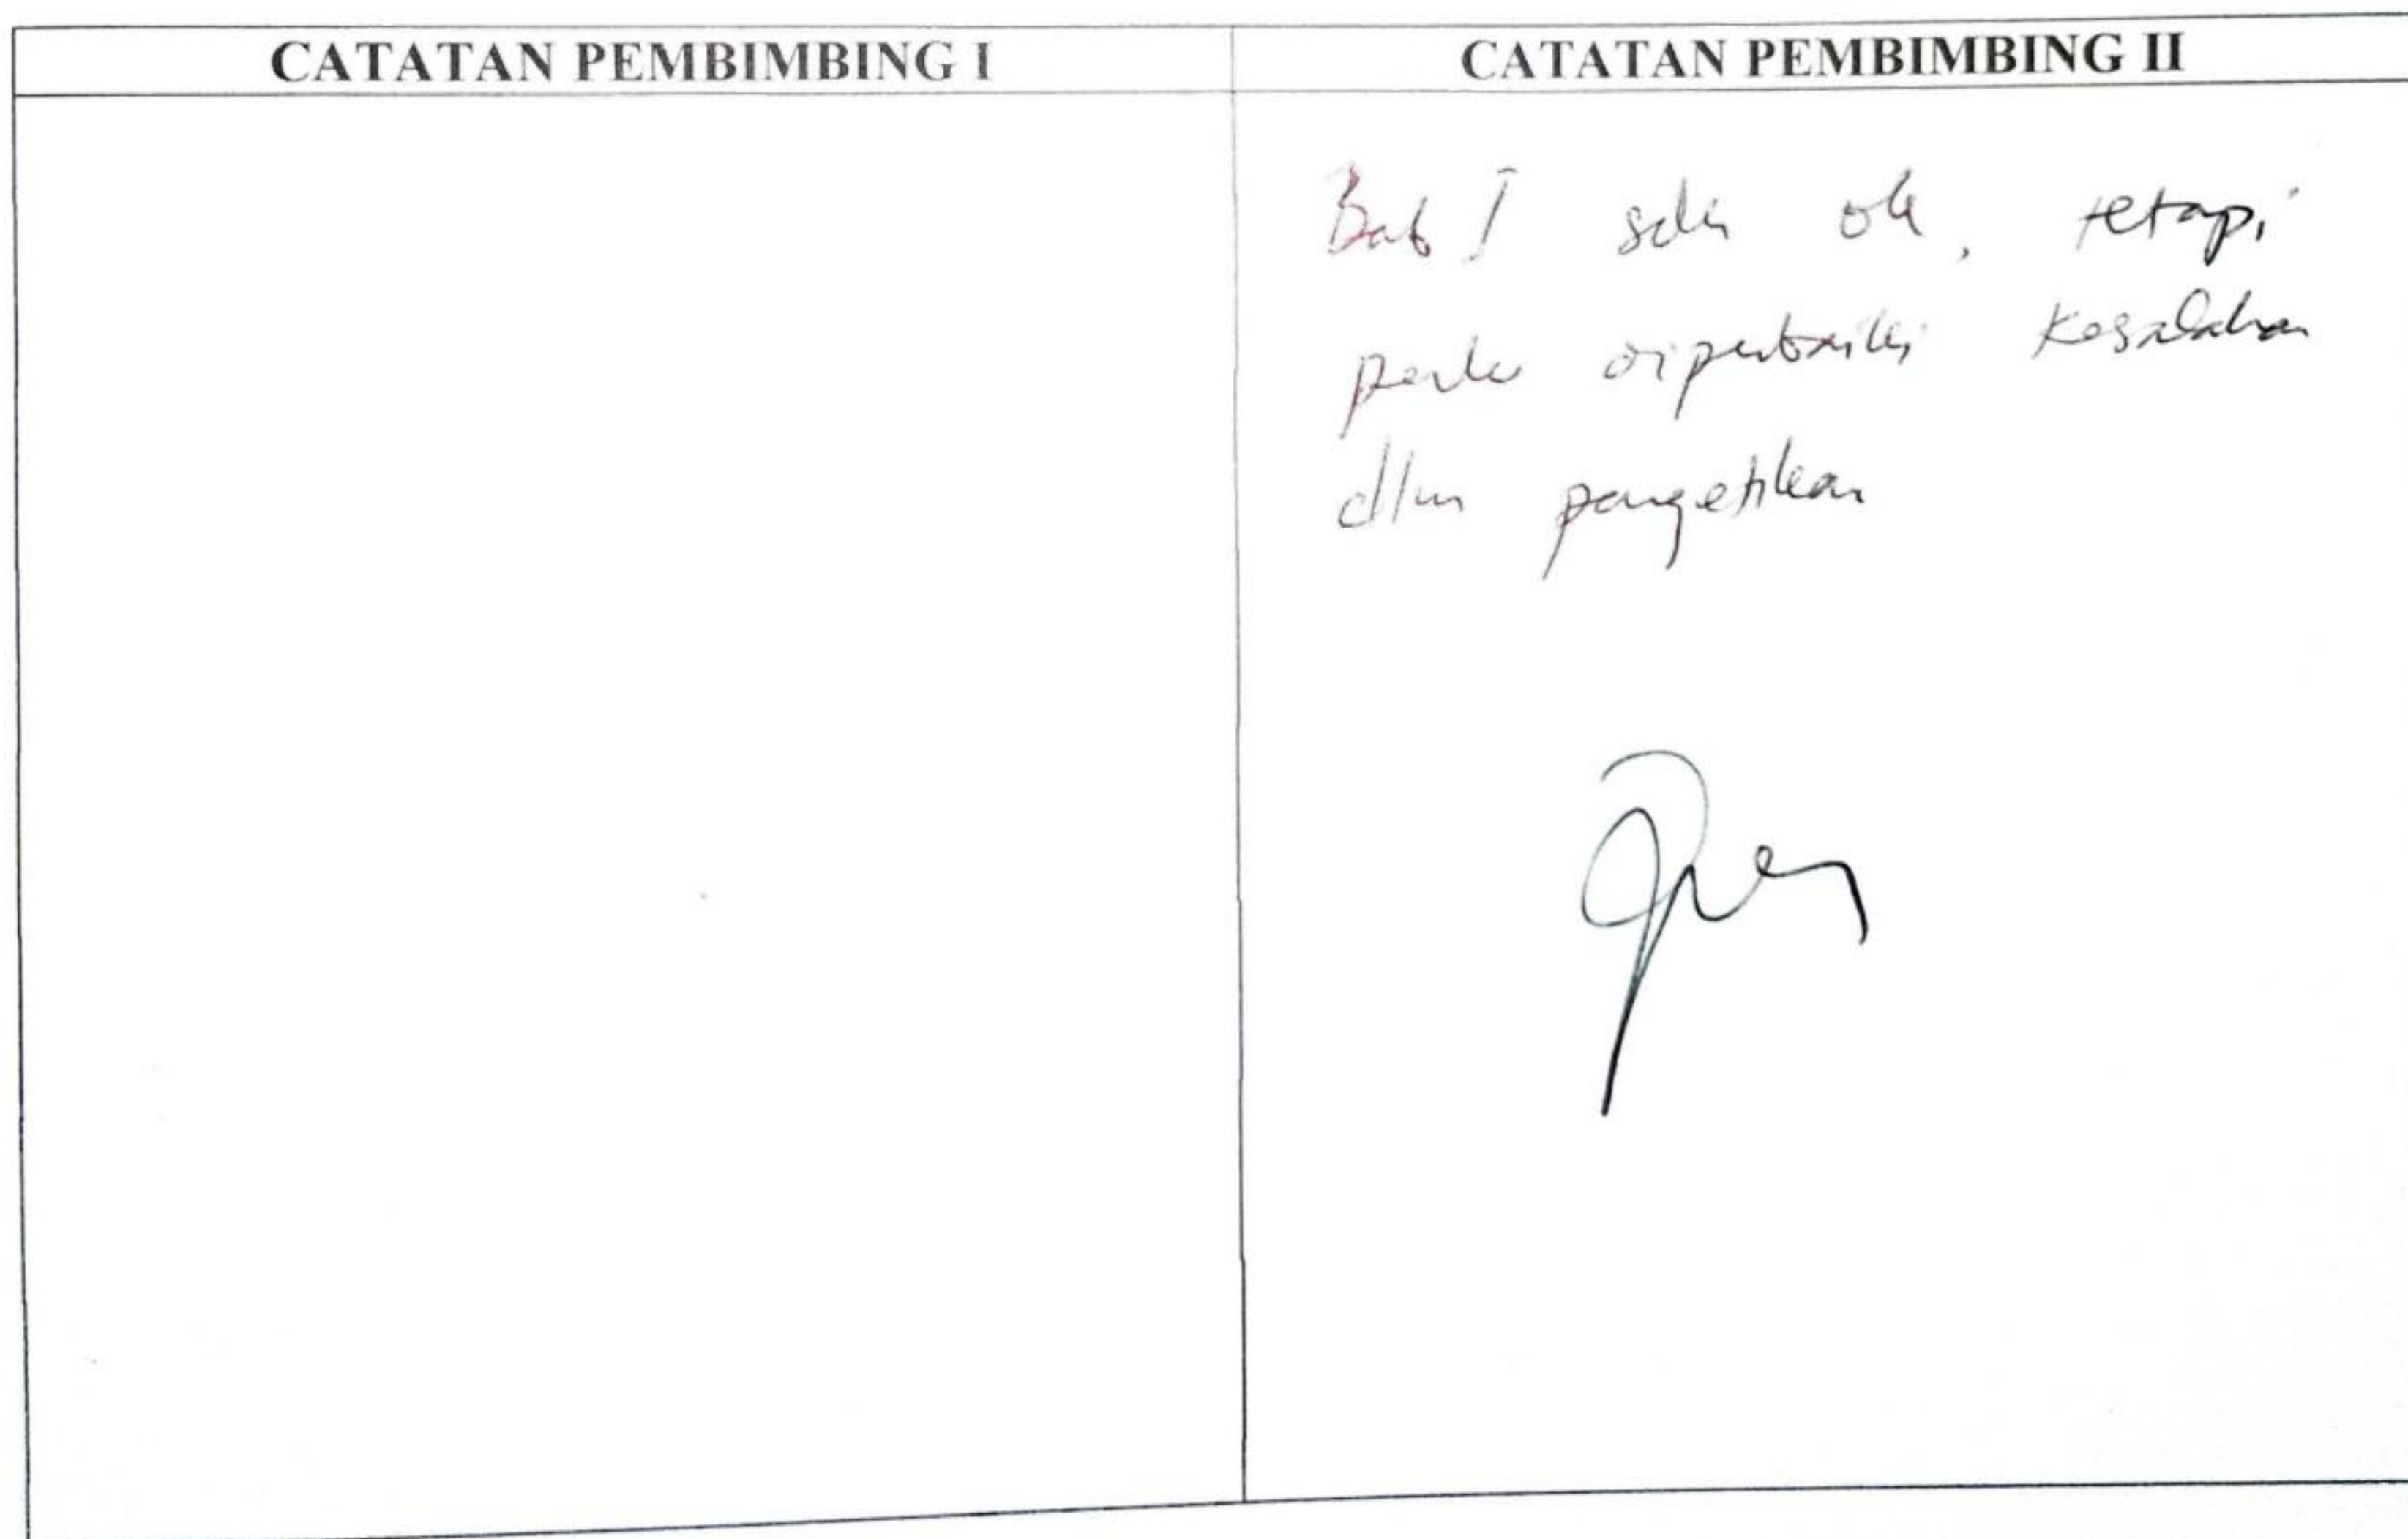 CATATAN PEMBIMBING I
CATATAN PEMBIMBING II
Bab I sdh ok, tetapi
perlu diperbaiki kesalahan
dlm pengetikan